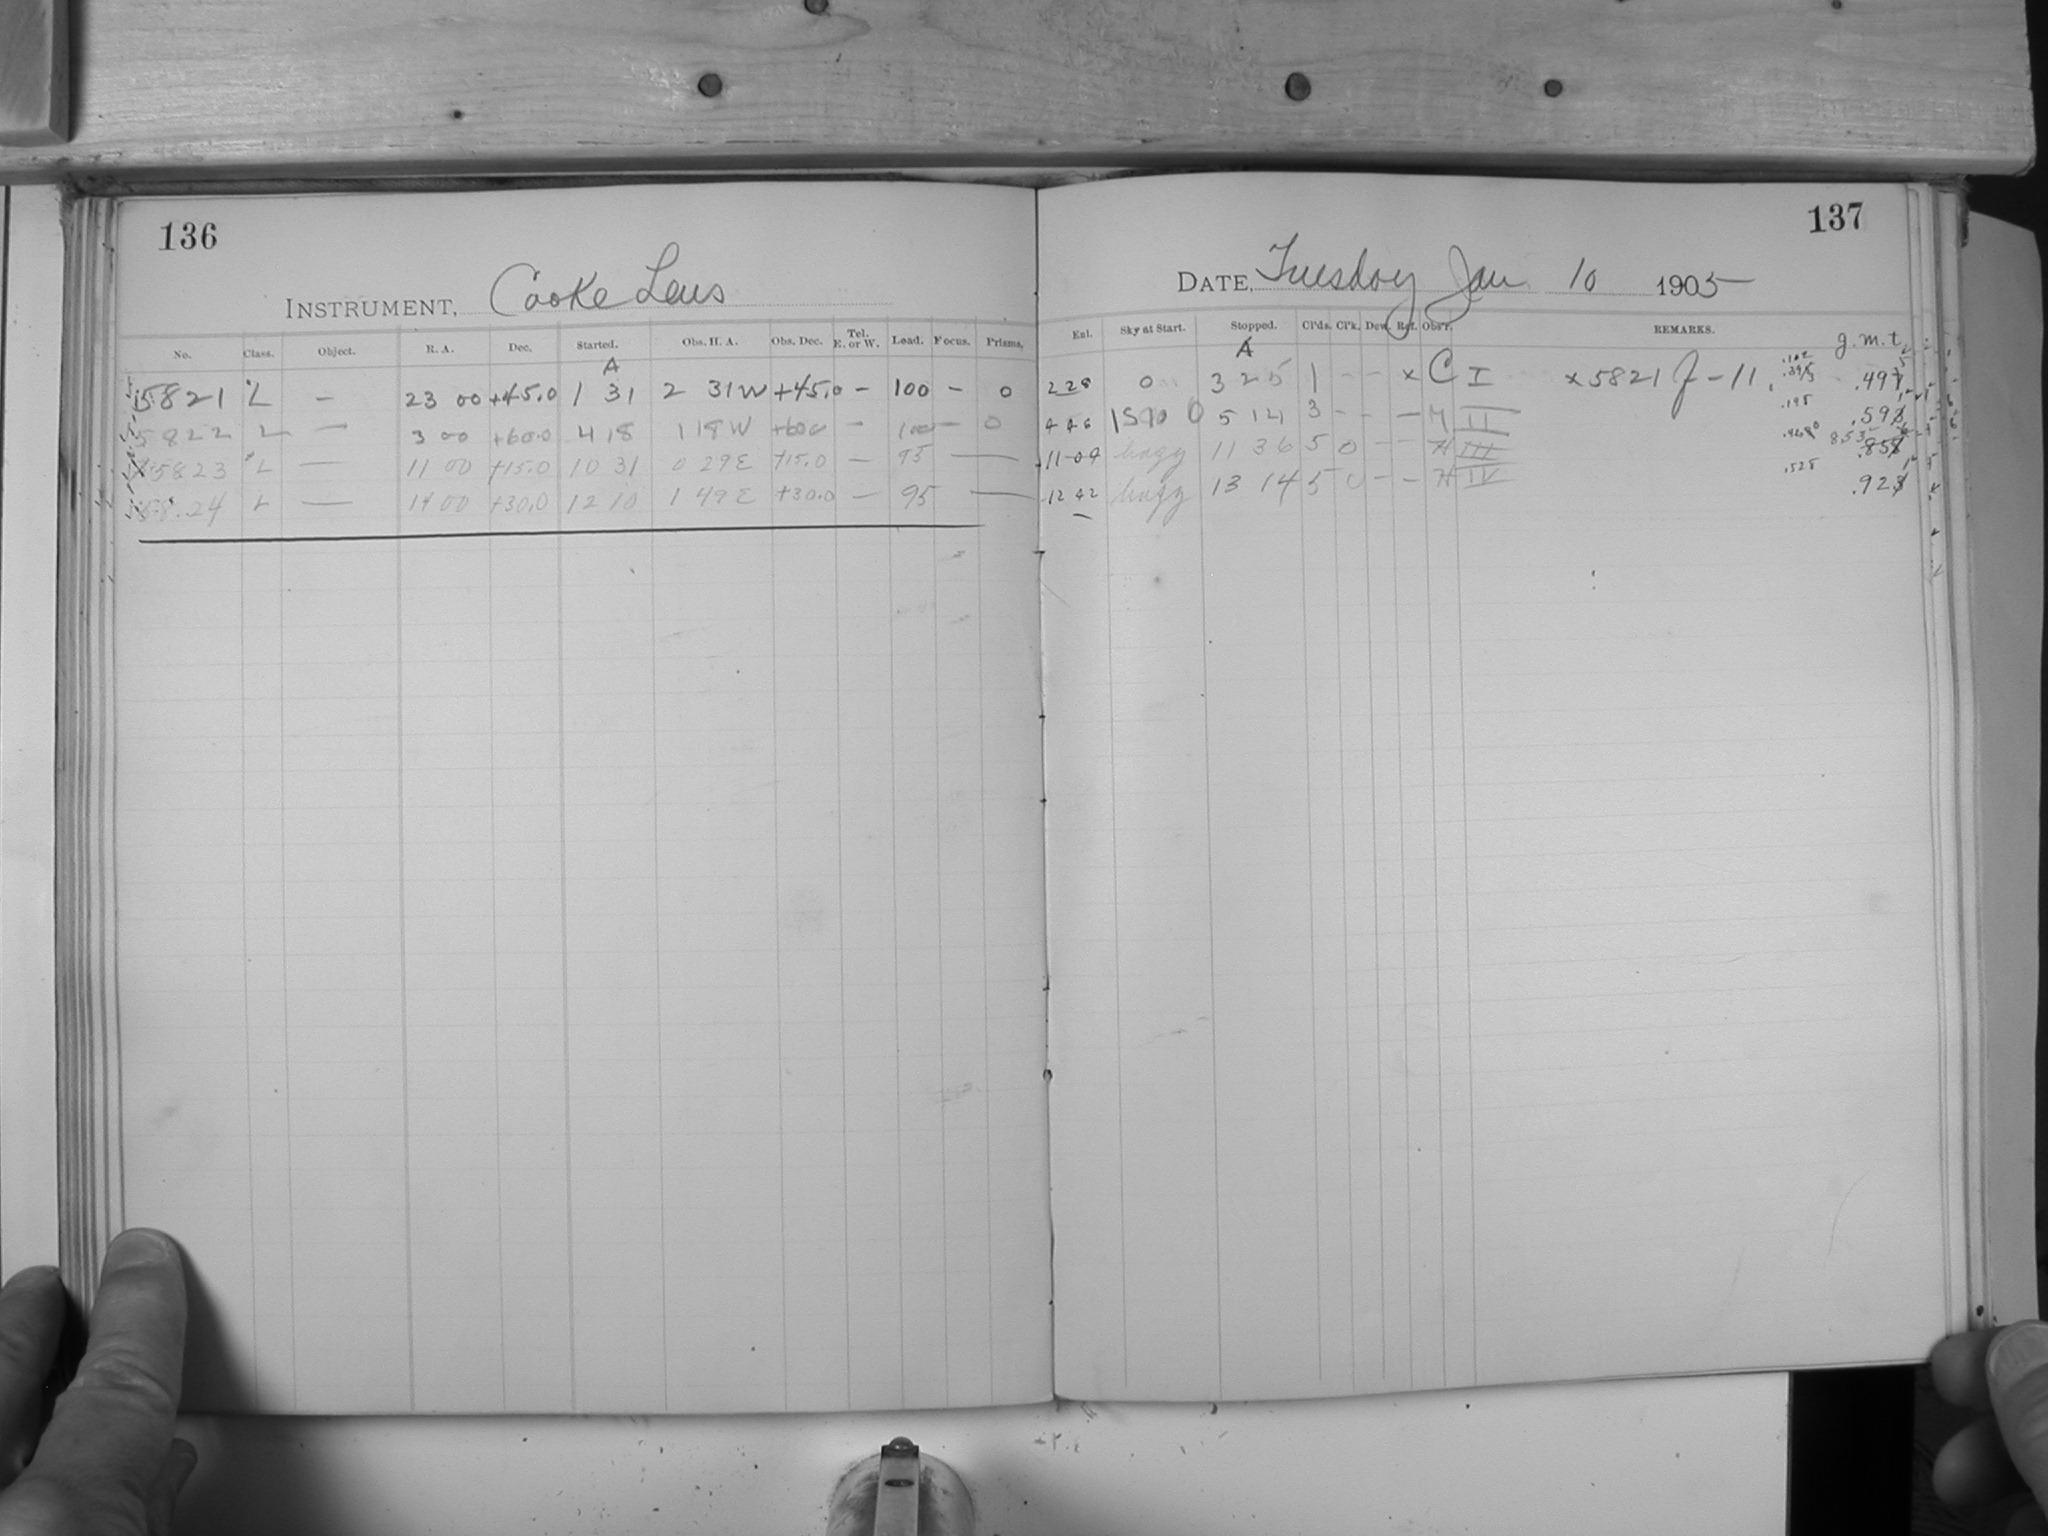 136
INSTRUMENT, Cooke Lens
No. Class. Object. R. A. Dec. Started. Obs. H. A. Obs. Dec. Tel. E. or W. Load. Focus. Prisms.
A
5821 L – 23 00 +45.0 1 31 2 31W +45.0 – 100 – 0
5822 L – 3 00 +60.0 4 18 1 18W +60.0 – 100 – 0
5823 L – 11 00 +15.0 10 31 0 29E +15.0 – 95 –
5824 L – 14 00 +30.0 12 10 1 49E +30.0 – 95 –
137
DATE, Tuesday Jan 10 1905
Enl. Sky at Start. Stopped. Cl'ds. Cl'k. Dew. Ref. Obs'r. REMARKS.
A g.m.t.
2 28 0 3 25 1 – – x C I x 5821 J – 11.
4 46 0 5 14 3 – – – H II .195
11-04 hazy 11 36 5 0 – – H III
12 42 hazy 13 14 5 0 – – H IV .525